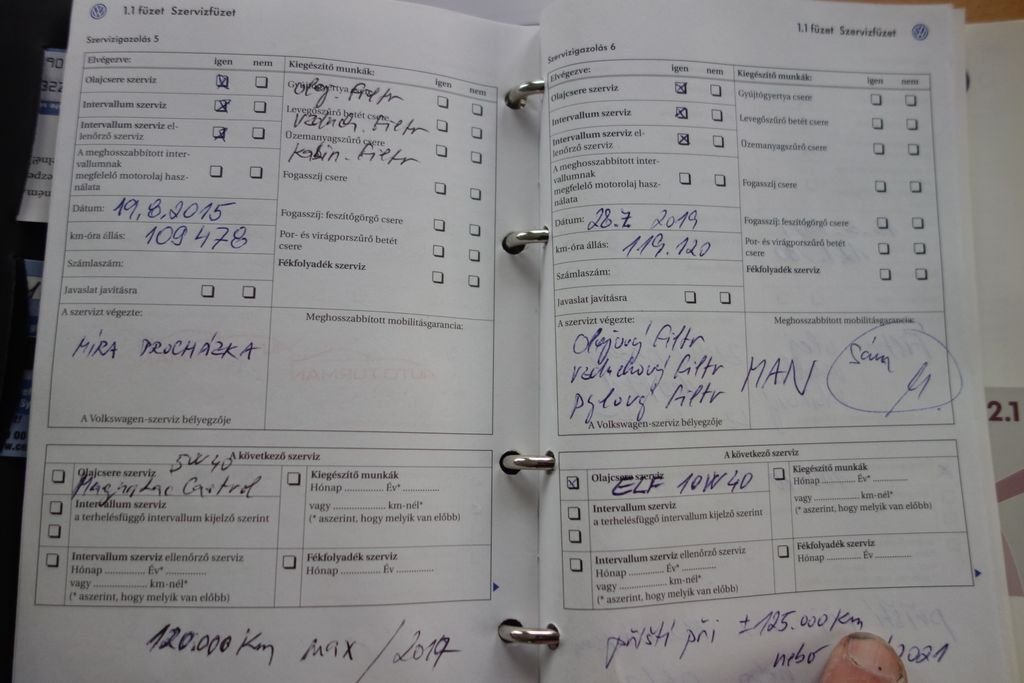 1.1 füzet Szervizfüzet
Szervizigazolás 5
Elvégezve: igen nem
Olajcsere szerviz
Intervallum szerviz
Intervallum szerviz el-
lenőrző szerviz
A meghosszabbított inter-
vallumnak
megfelelő motorolaj hasz-
nálata
Dátum: 19,8.2015
km-óra állás: 109 478
Számlaszám:
Javaslat javításra
Kiegészítő munkák: igen nem
Gyújtógyertya csere
olej. filtr
Levegőszűrő betét csere
vzduch. filtr
Üzemanyagszűrő csere
kabin. filtr
Fogasszíj csere
Fogasszíj: feszítőgörgő csere
Por- és virágporszűrő betét
csere
Fékfolyadék szerviz
A szervizt végezte:
MÍRA PROCHÁZKA
A Volkswagen-szerviz bélyegzője
Meghosszabbított mobilitásgarancia:
AUTOTURMAN
A következő szerviz
5W40
Olajcsere szerviz
Magnatec Castrol
Intervallum szerviz
a terhelésfüggő intervallum kijelző szerint
Intervallum szerviz ellenőrző szerviz
Hónap ............. Év* .............
vagy ................. km-nél*
(* aszerint, hogy melyik van előbb)
Kiegészítő munkák
Hónap ............. Év* .............
vagy ................. km-nél*
(* aszerint, hogy melyik van előbb)
Fékfolyadék szerviz
Hónap ............. Év .............
120.000 Km max / 2017
1.1 füzet Szervizfüzet
Szervizigazolás 6
Elvégezve: igen nem
Olajcsere szerviz
Intervallum szerviz
Intervallum szerviz el-
lenőrző szerviz
A meghosszabbított inter-
vallumnak
megfelelő motorolaj hasz-
nálata
Dátum: 28.7. 2019
km-óra állás: 119.120
Számlaszám:
Javaslat javításra
Kiegészítő munkák: igen nem
Gyújtógyertya csere
Levegőszűrő betét csere
Üzemanyagszűrő csere
Fogasszíj csere
Fogasszíj: feszítőgörgő csere
Por- és virágporszűrő betét
csere
Fékfolyadék szerviz
A szervizt végezte:
Olejový filtr
vzduchový filtr
pylový filtr
MAN
A Volkswagen-szerviz bélyegzője
Meghosszabbított mobilitásgarancia:
Sám
A következő szerviz
Olajcsere szerviz
ELF 10W40
Intervallum szerviz
a terhelésfüggő intervallum kijelző szerint
Intervallum szerviz ellenőrző szerviz
Hónap ............. Év* .............
vagy ................. km-nél*
(* aszerint, hogy melyik van előbb)
Kiegészítő munkák
Hónap ............. Év* .............
vagy ................. km-nél*
(* aszerint, hogy melyik van előbb)
Fékfolyadék szerviz
Hónap ............. Év .............
příští při ±125.000 Km
nebo 2021
2.1